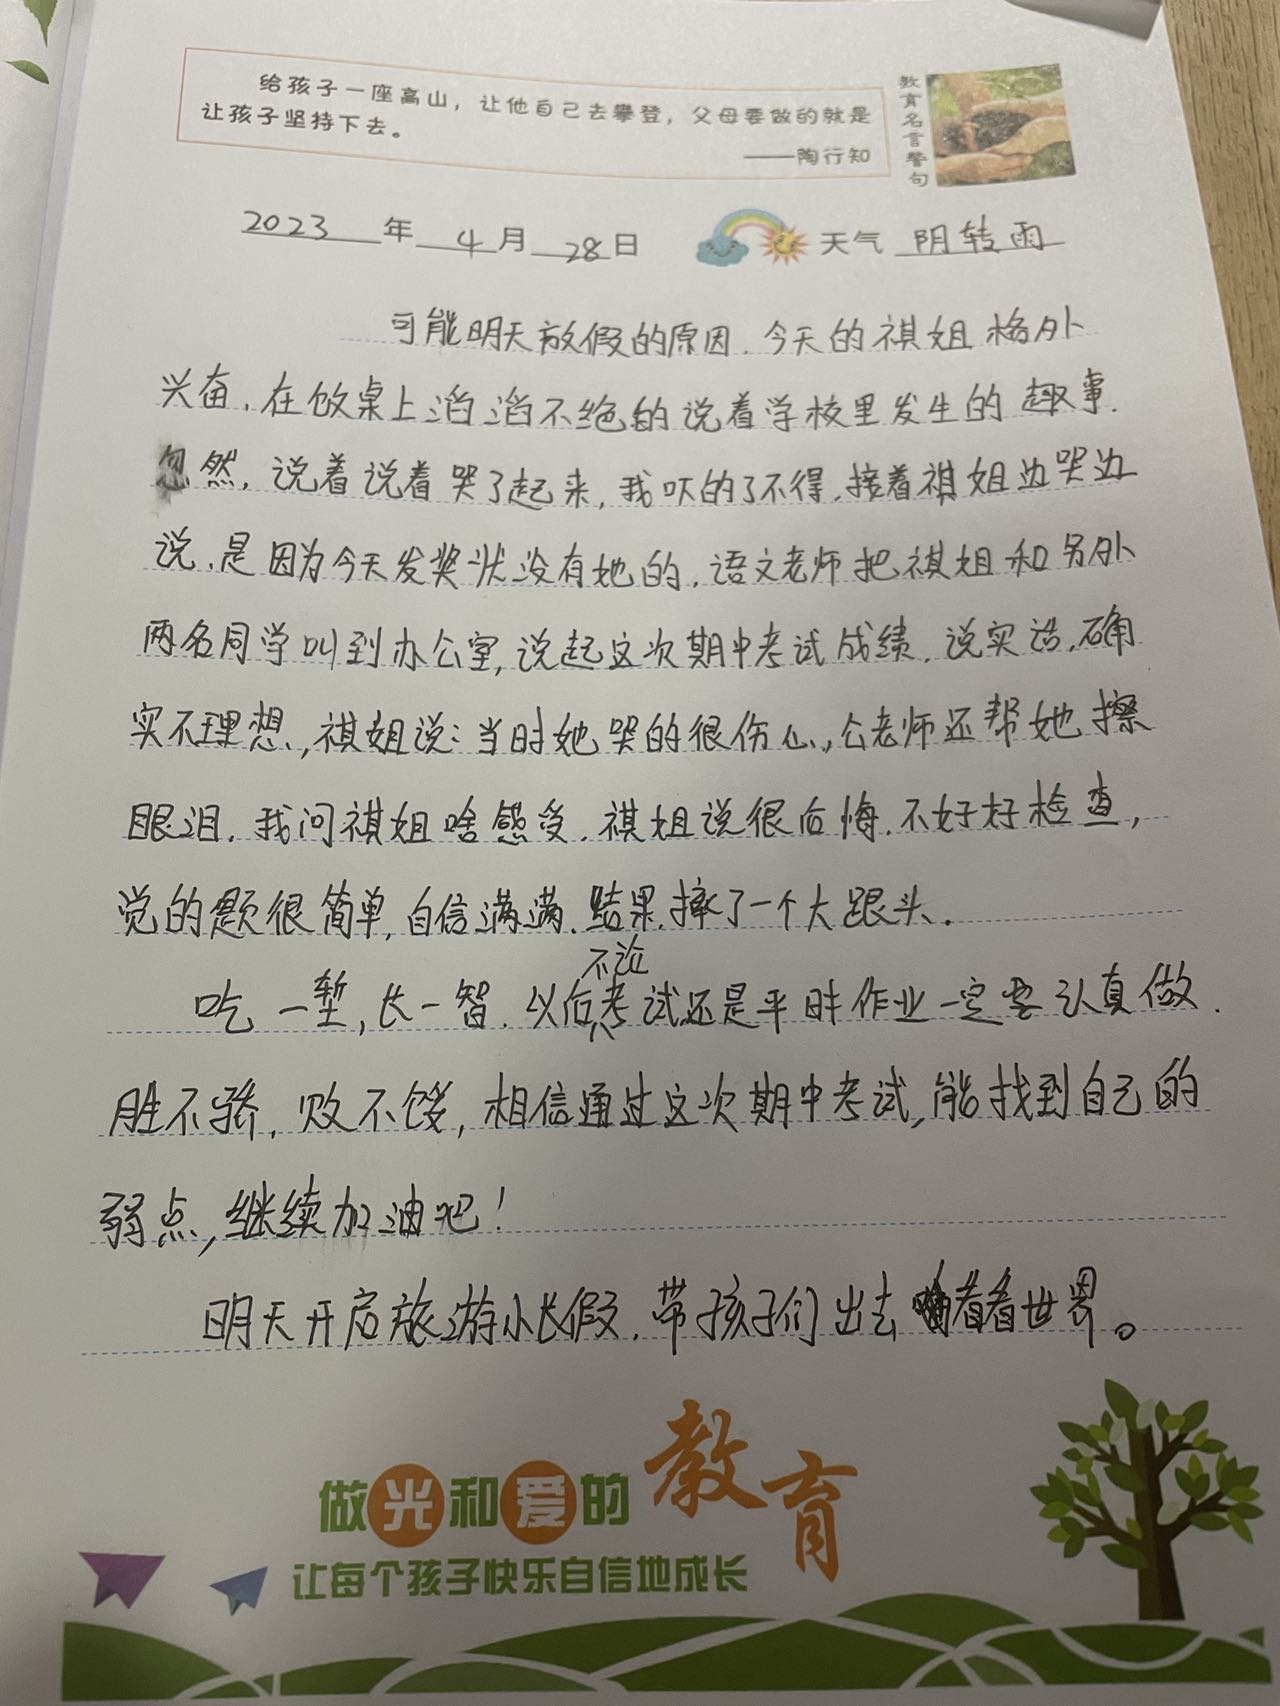 给孩子一座高山，让他自己去攀登，父母要做的就是
让孩子坚持下去。
——陶行知
教育名言警句
2023年4月28日 天气 阴转雨
可能明天放假的原因.今天的祺姐格外
兴奋.在饭桌上滔滔不绝的说着学校里发生的趣事.
忽然,说着说着哭了起来,我吓的了不得.接着祺姐边哭边
说.是因为今天发奖状没有她的.语文老师把祺姐和另外
两名同学叫到办公室,说起这次期中考试成绩.说实话,确
实不理想,祺姐说:当时她哭的很伤心,公老师还帮她擦
眼泪.我问祺姐啥感受.祺姐说很后悔.不好好检查,
觉的题很简单,自信满满.结果摔了一个大跟头.
吃一堑,长一智.以后不论考试还是平时作业一定要认真做.
胜不骄,败不馁,相信通过这次期中考试,能找到自己的
弱点,继续加油吧!
明天开启旅游小长假.带孩子们出去看看世界。
做光和爱的教育
让每个孩子快乐自信地成长